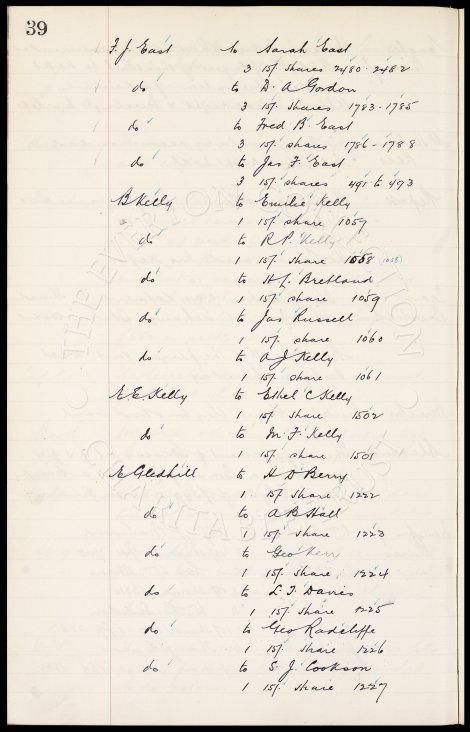 39
F. J. East to Sarah East
3 15/. shares 2480 - 2482
do to D. A Gordon
3 15/. shares 1783 - 1785
do to Fred B. East
3 15/. shares 1786 - 1788
do to Jas F. East
3 15/. shares 491 to 493
B Kelly to Emilie Kelly
1 15/. share 1057
do to R P. Kelly
1 15/. share 1058 (1058)
do to H L. Bretland
1 15/. share 1059
do to Jas Russell
1 15/. share 1060
do to A J Kelly
1 15/. share 1061
E. E. Kelly to Ethel C Kelly
1 15/. share 1502
do to M. F Kelly
1 15/. share 1501
E Gledhill to H D Berry
1 15/. share 1222
do to A B Hall
1 15/. share 1223
do to Geo Kerr
1 15/. share 1224
do to L. T. Davies
1 15/. share 1225
do to Geo Radcliffe
1 15/. share 1226
do to S. J. Cookson
1 15/. share 1227
THE EVERTON COLLECTION
CHARITABLE TRUST